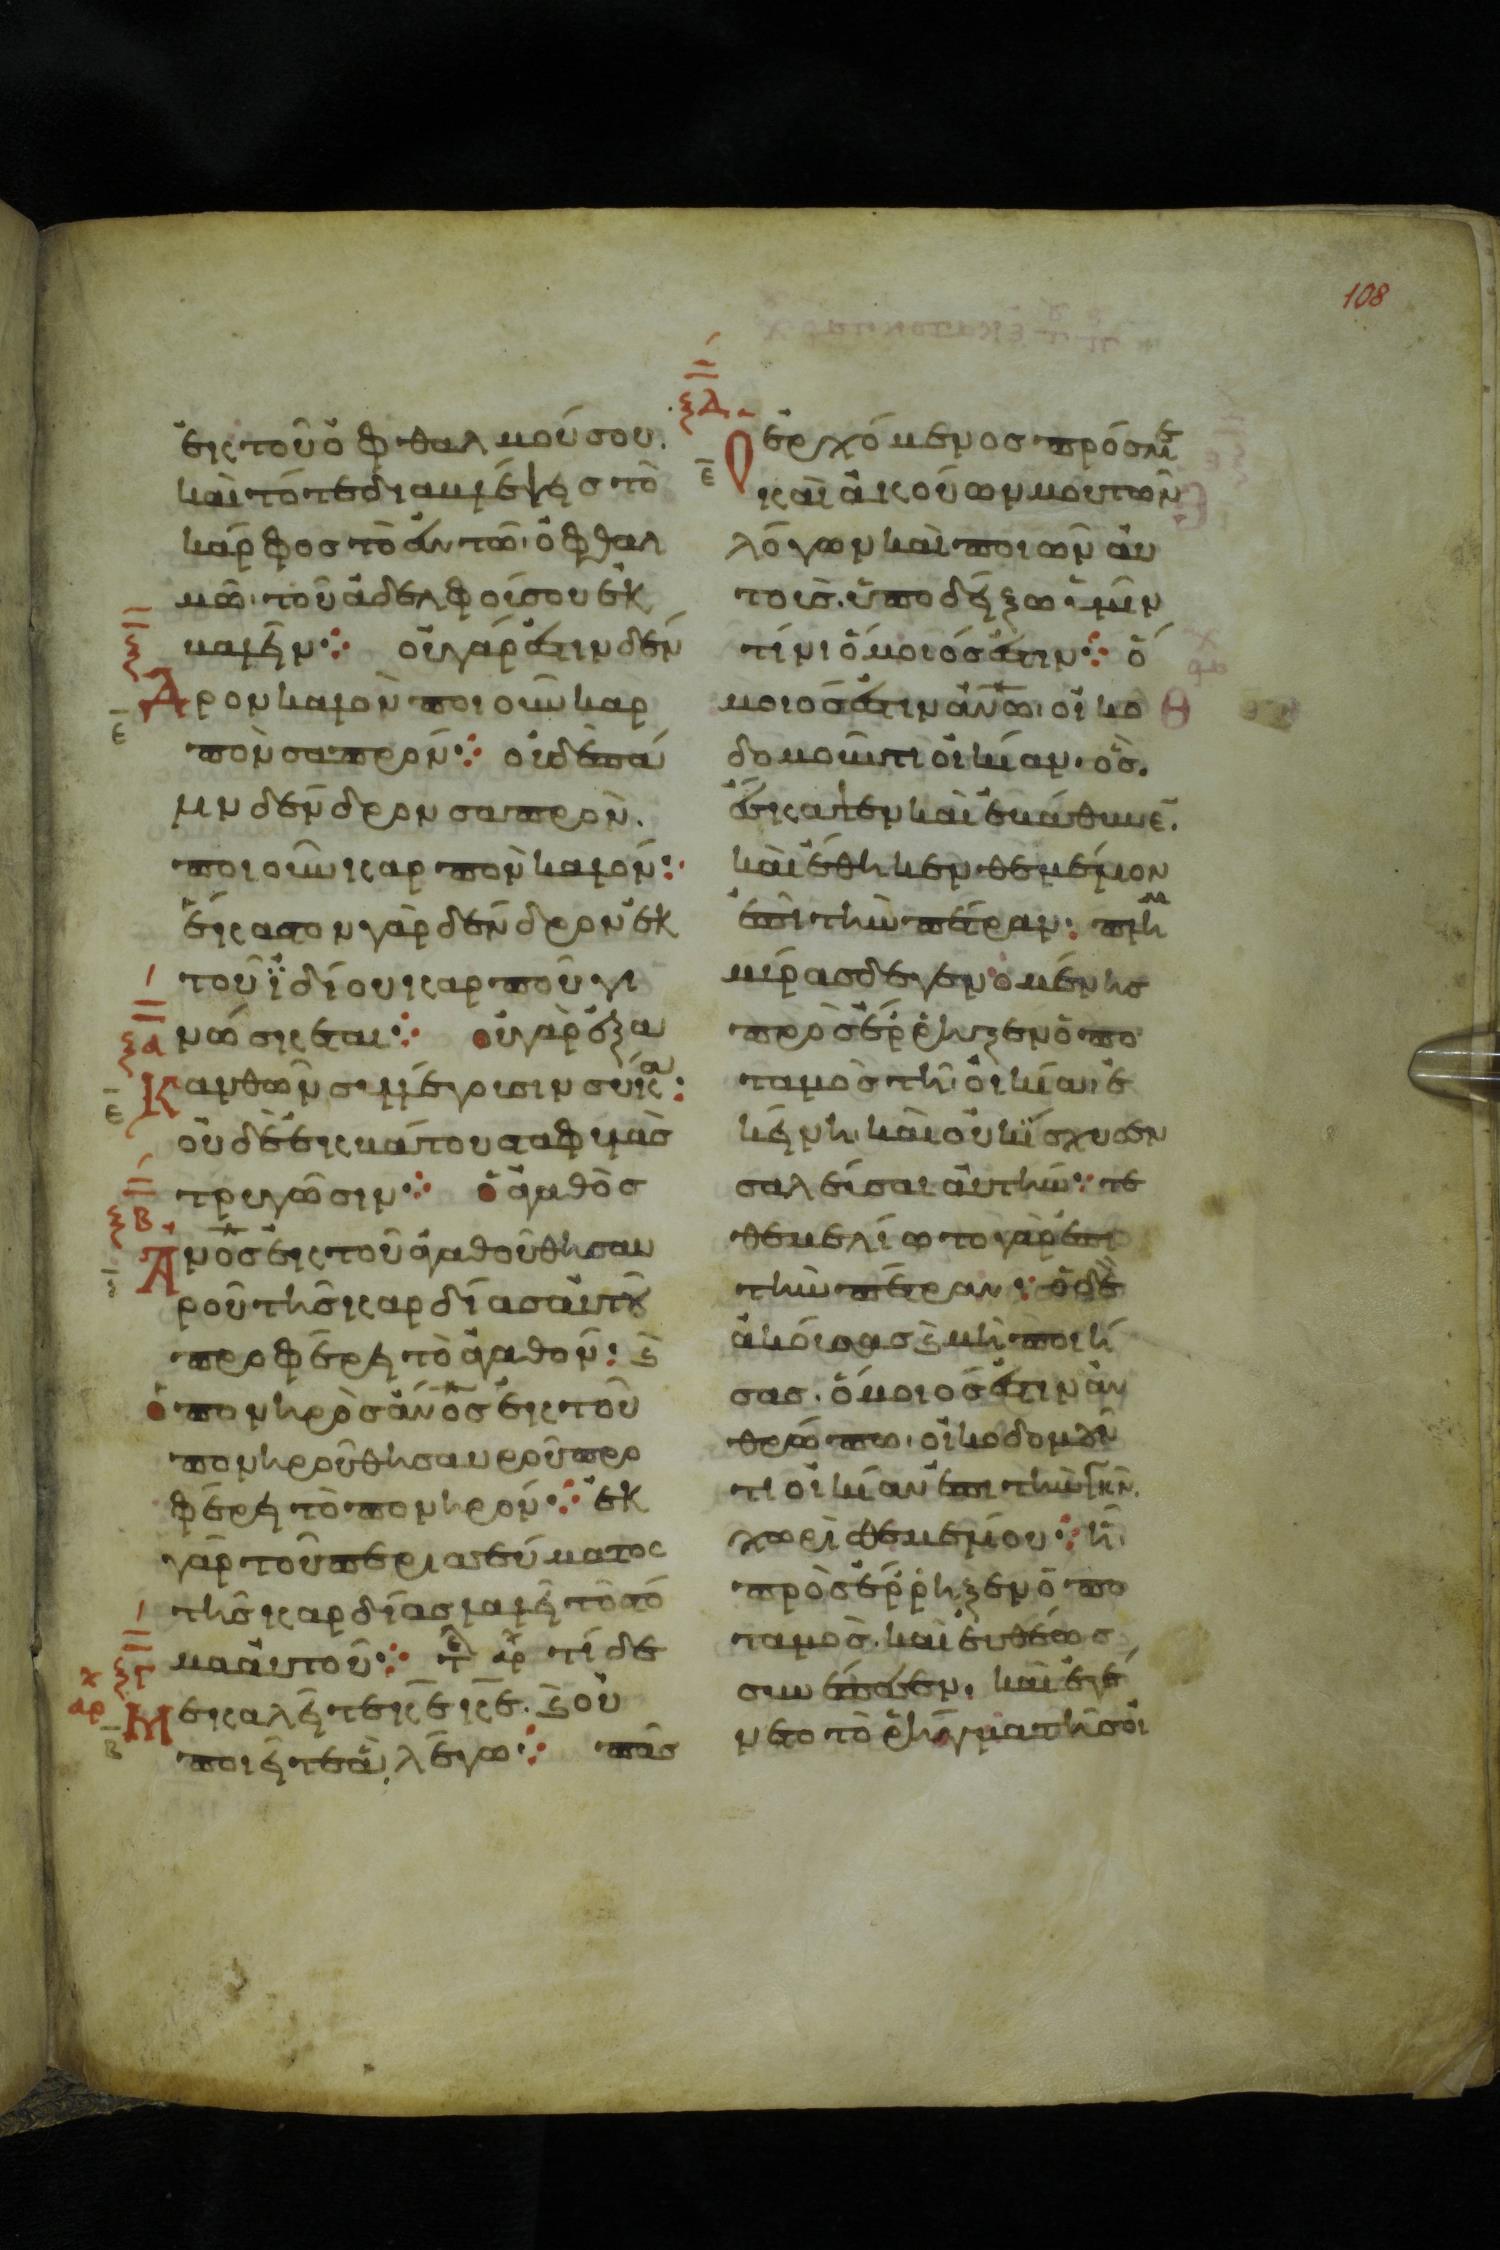 108
ἐκ τοῦ ὀφθαλμού σου.
καὶ τότε διαμλέψης τὸ
κάρφος τὸ ἐν τῶ ὀφθαλ
μῶ τοῦ ἀδελφού σου ἐκ
βαλεῖν: οὐ γάρ ἐστιν δέν
δρον καλὸν ποιοῦν καρ
πὸν σαπρόν: οὐδὲ πά
λιν δένδρον σαπρὸν.
ποιοῦν καρπὸν καλόν:
ἕκαστον γὰρ δένδρον ἐκ
τοῦ ἰδίου καρποῦ γι
νώσκεται: οὐ γὰρ ἐξ α
κανθῶν συλλέγουσιν σύκα:
οὐδὲ ἐκ βάτου σταφυλὰς
τρυγῶσιν: ὁ ἀγαθὸς
ανος ἐκ τοῦ ἀγαθοῦ θησαυ
ροῦ τῆς καρδίας αὐτοῦ
προφέρει τὸ ἀγαθόν: καὶ
ὁ πονηρὸς ανος ἐκ τοῦ
πονηροῦ θησαυροῦ προ
φέρει τὸ πονηρόν: ἐκ
γὰρ τοῦ περισσεύματος
τῆς καρδίας λαλεῖ τὸ στό
μα αὐτοῦ: τί δέ
με καλεῖτε κε κε. καὶ οὐ
ποιεῖτε ἃ λέγω: πᾶς
ὁ ἐρχόμενος πρός με
καὶ ἀκούων μου τῶν
λόγων καὶ ποιῶν αὐ
τοὺς. ὑποδείξω ὑμῖν
τίνι ὅμοιός ἐστιν: ὅ
μοιος ἐστιν ανω οἰκο
δομοῦντι οἰκίαν. ὃς.
ἔσκαψεν καὶ ἐβάθυνε.
καὶ ἔθηκεν θεμέλιον
ἐπὶ τὴν πέτραν: πλημ
μύρας δὲ γενομένης
προσέρρηξεν ὁ πο
ταμὸς τῆ οἰκία ἐ
κείνη καὶ οὐκ ἴσχυσεν
σαλεύσαι αὐτὴν: τε
θεμελίωτο γὰρ ἐπὶ
τὴν πέτραν: ὁ δὲ
ἀκούσας καὶ μὴ ποιή
σας. ὅμοιός ἐστιν ἀν
θρώπω οἰκοδομοῦν
τι οἰκίαν ἐπι τὴν γῆν.
χωρὶ θεμελίου: ἧ
προσέρρηξεν ὁ πο
ταμὸς. καὶ εὐθέως
συνέπεσεν. καὶ ἐγέ
νετο τὸ ρῆγμα τῆς οἰ